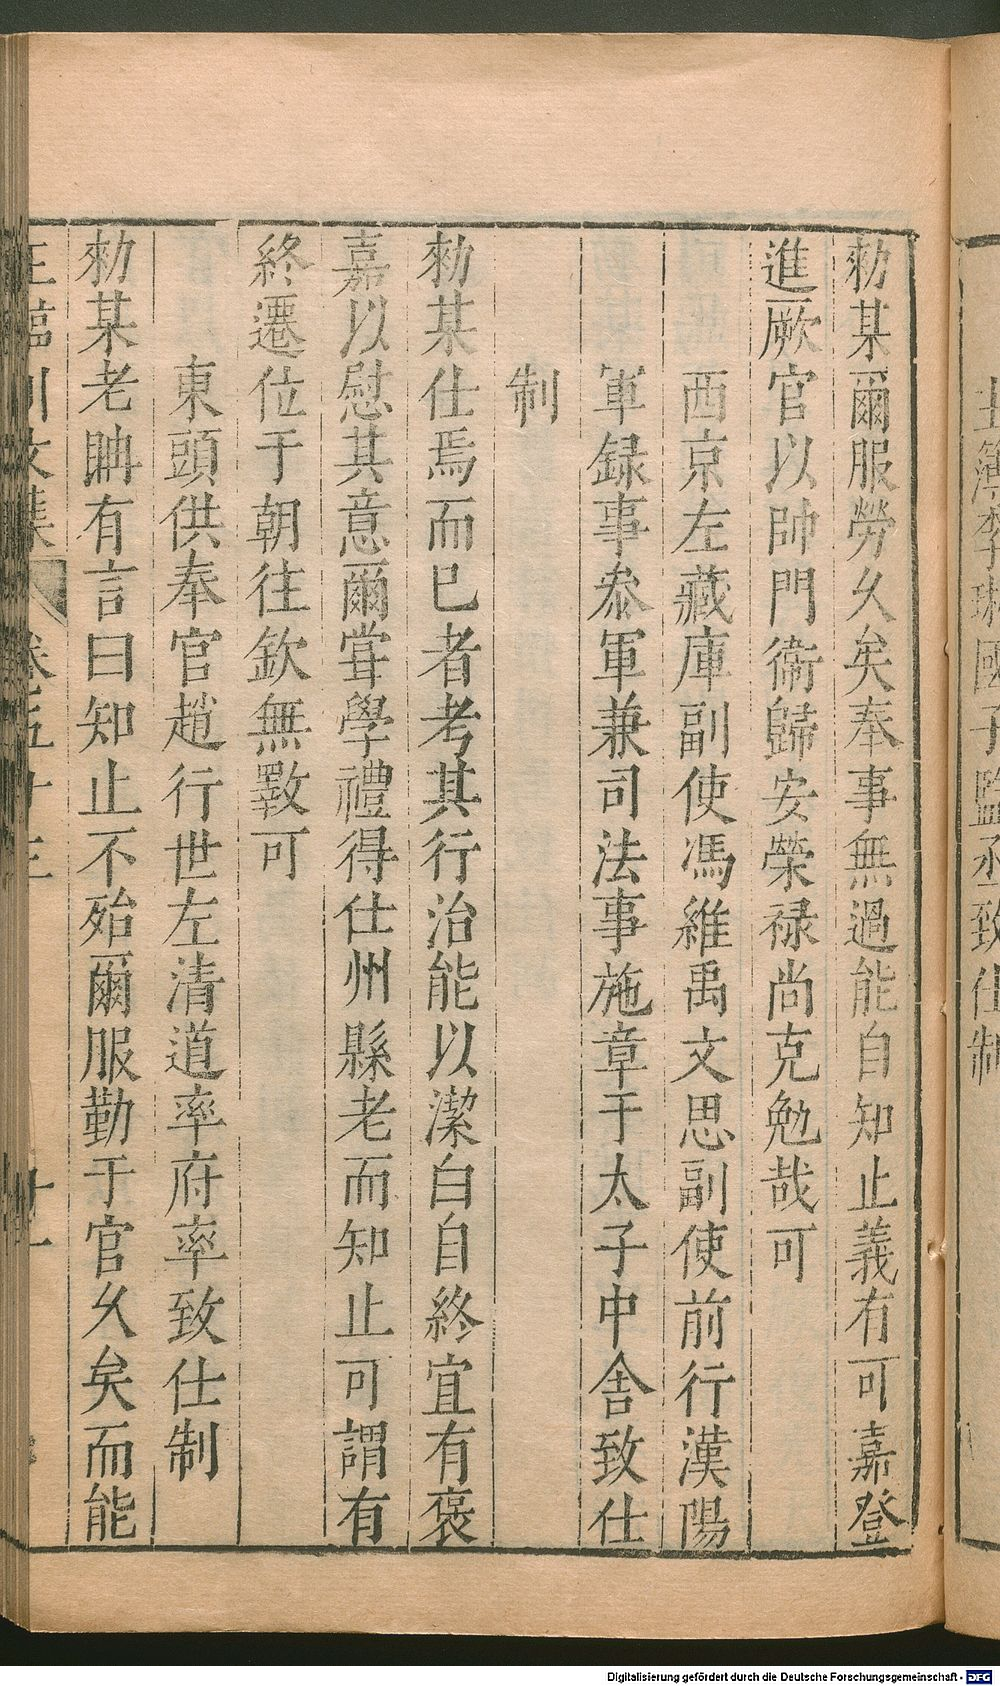 主簿李琳國子監丞致仕制
勑某爾服勞久矣奉事無過能自知止義有可嘉登
進厥官以帥門衞歸安榮禄尚克勉哉可
西京左藏庫副使馮維禹文思副使前行漢陽
軍録事叅軍兼司法事施章于太子中舍致仕
制
勑某仕焉而已者考其行治能以潔白自終宜有褒
嘉以慰其意爾甞學禮得仕州縣老而知止可謂有
終遷位于朝往欽無斁可
東頭供奉官趙行世左清道率府率致仕制
勑某老聃有言曰知止不殆爾服勤于官久矣而能
王臨川文集 卷五十三 十一
Digitalisierung gefördert durch die Deutsche Forschungsgemeinschaft - DFG